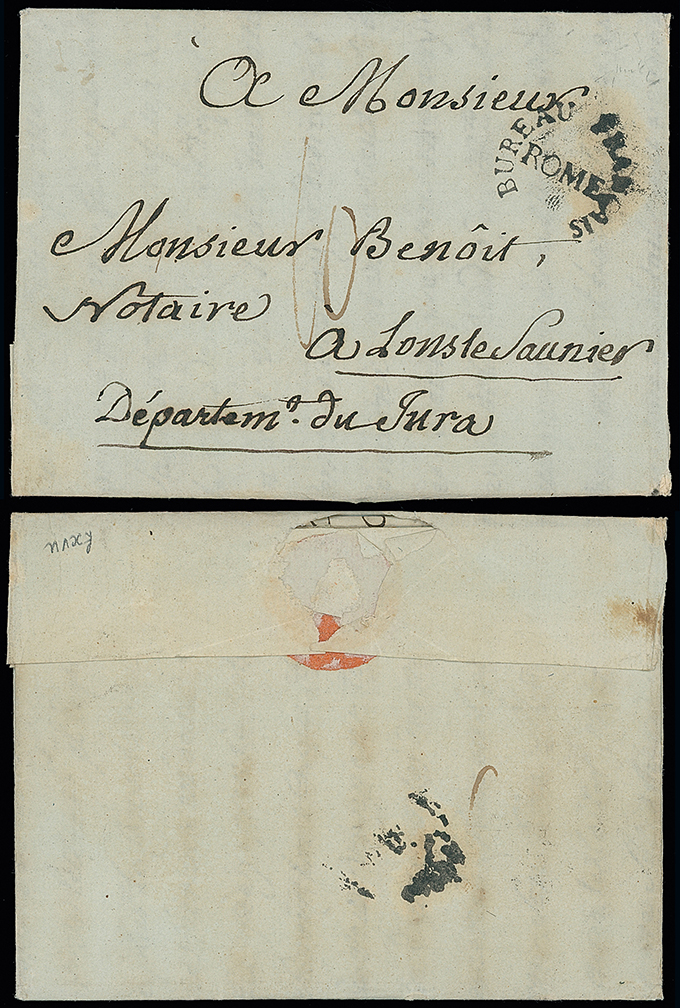 A Monsieur
BUREAU FRANÇAIS
ROME
Monsieur Benôit,
Notaire
à Lons le Saunier
Départemt. du Jura